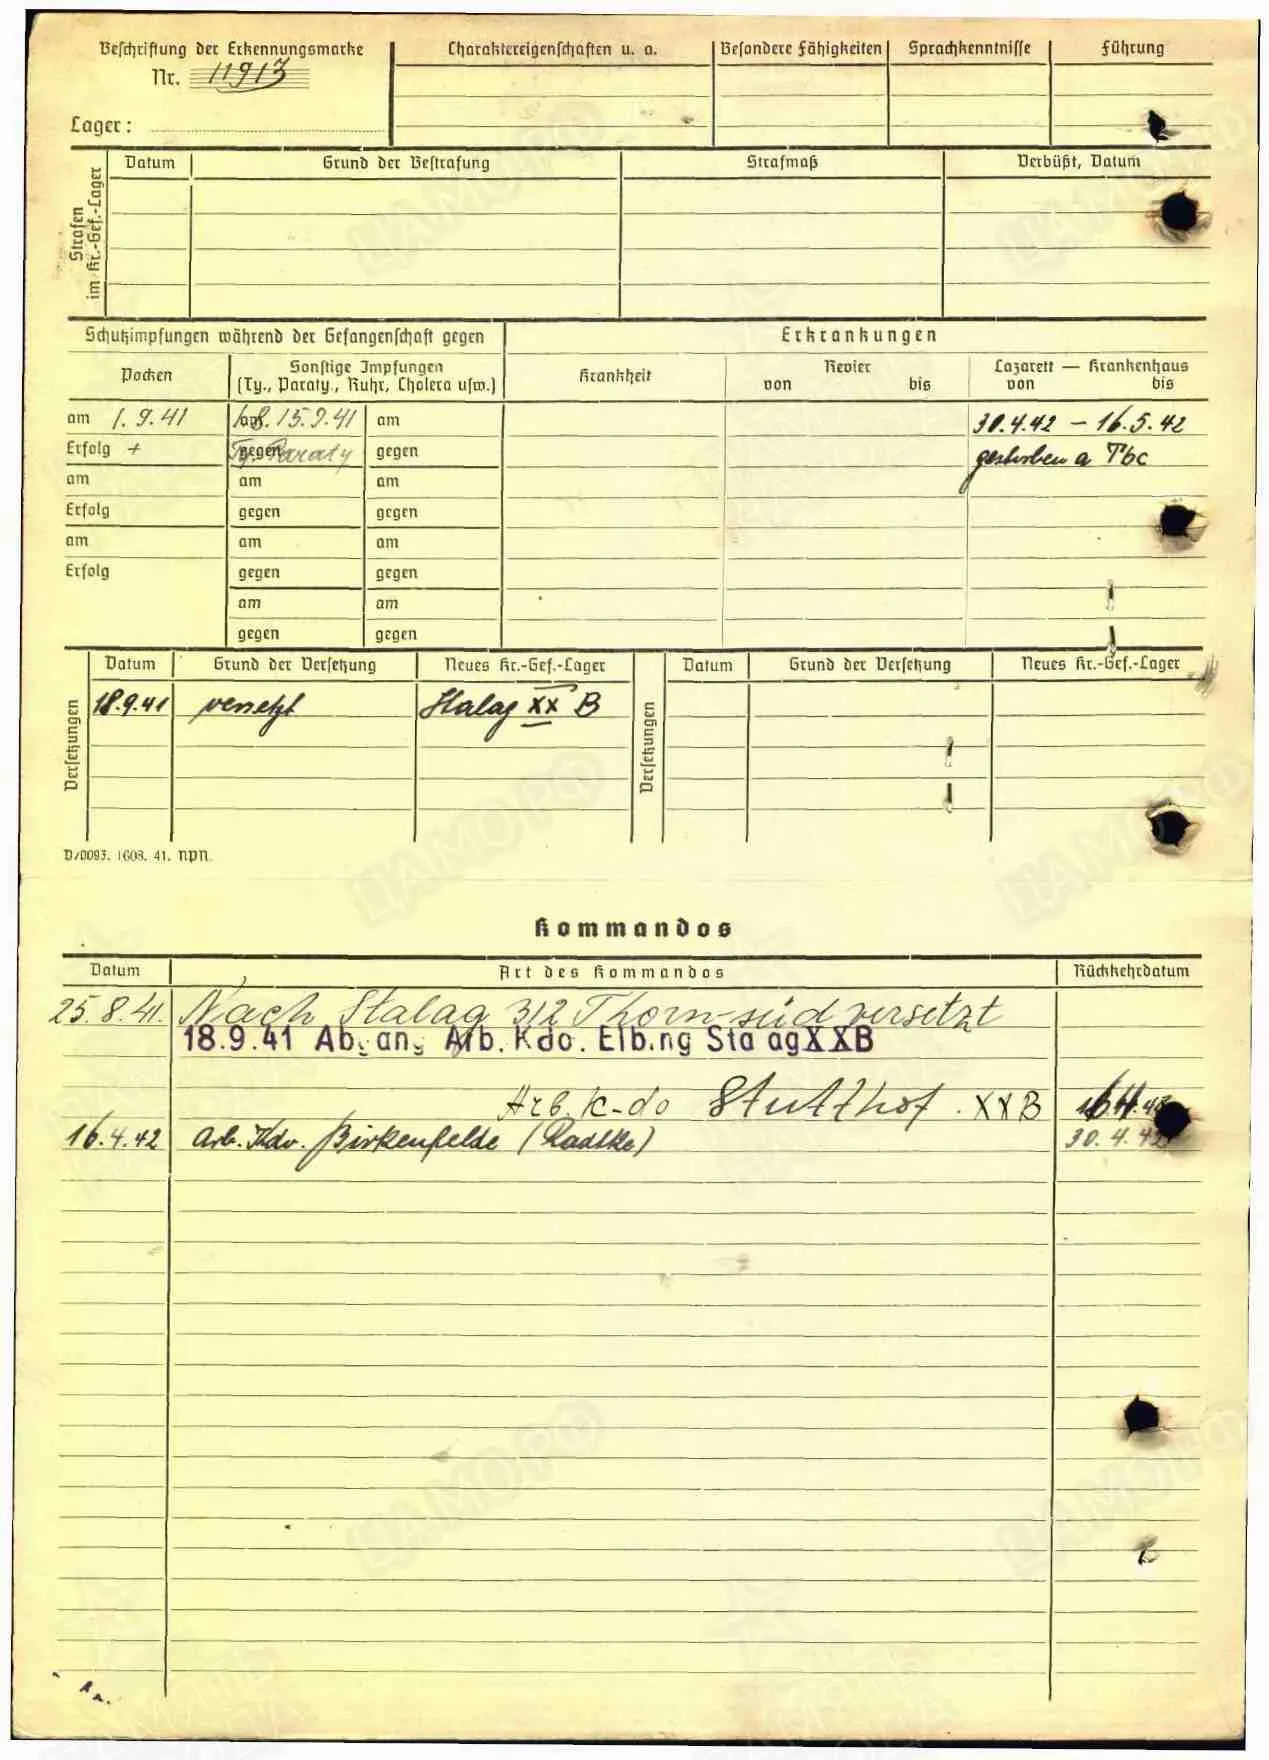 Beschriftung der Erkennungsmarke
Nr. 11913
Lager:
Charaktereigenschaften u. a.
Besondere Fähigkeiten
Sprachkenntnisse
Führung
Strafen
im Kr.-Gef.-Lager
Datum
Grund der Bestrafung
Strafmaß
Verbüßt, Datum
Schutzimpfungen während der Gefangenschaft gegen
Erkrankungen
Pocken
Sonstige Impfungen
(Ty., Paraty., Ruhr, Cholera usw.)
Krankheit
Revier
von bis
Lazarett — Krankenhaus
von bis
am 1.9.41
am 15.9.41
am
30.4.42 – 16.5.42
Erfolg +
gegen Ty. Paraty
gegen
gestorben a Tbc
am
am
am
Erfolg
gegen
gegen
am
am
am
Erfolg
gegen
gegen
am
am
gegen
gegen
Versetzungen
Datum
Grund der Versetzung
Neues Kr.-Gef.-Lager
Versetzungen
Datum
Grund der Versetzung
Neues Kr.-Gef.-Lager
18.9.41 versetzt Stalag XX B
D/0093. 1608. 41. npn.
Kommandos
Datum
Art des Kommandos
Rückkehrdatum
25.8.41. Nach Stalag 312 Thorn-süd versetzt
18.9.41 Abgang Arb. Kdo. Elbing Stalag XXB
Arb. K-do Stutthof. XXB
16.4.42 Arb. Kdo. Birkenfelde (Radtke) 30.4.42
LAMOPO